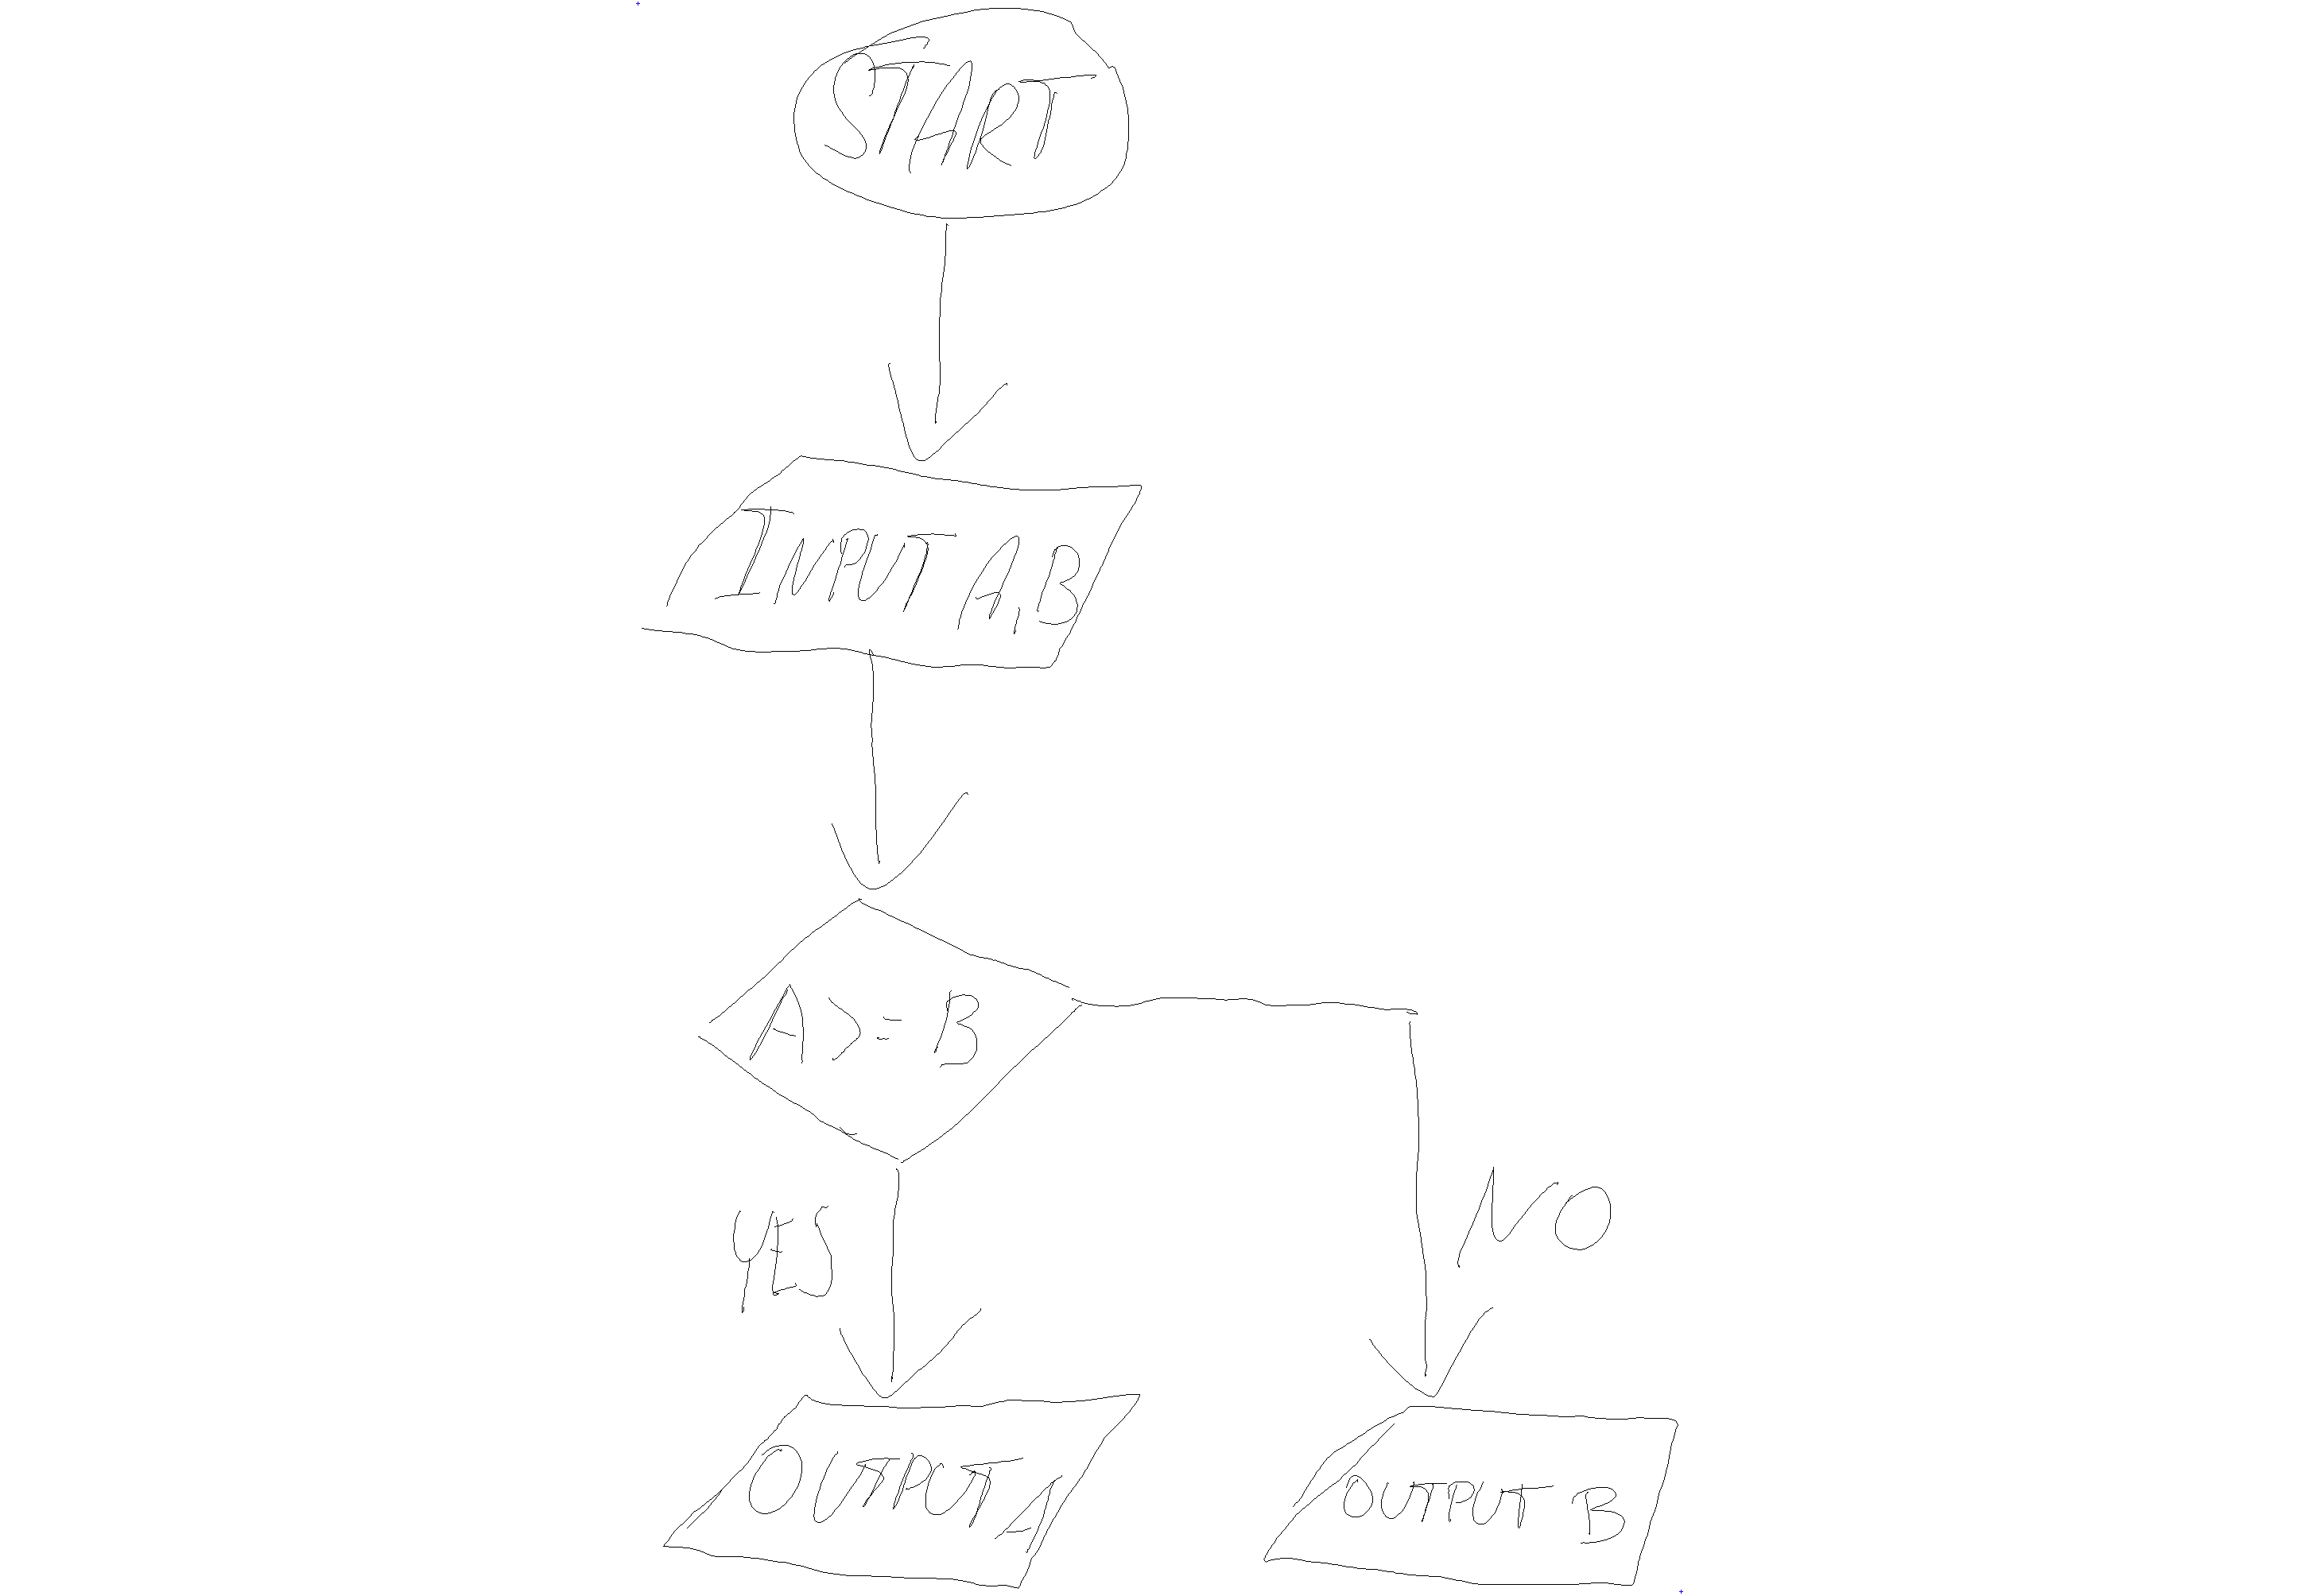 START
INPUT A, B
A >= B
YES
NO
OUTPUT A
OUTPUT B